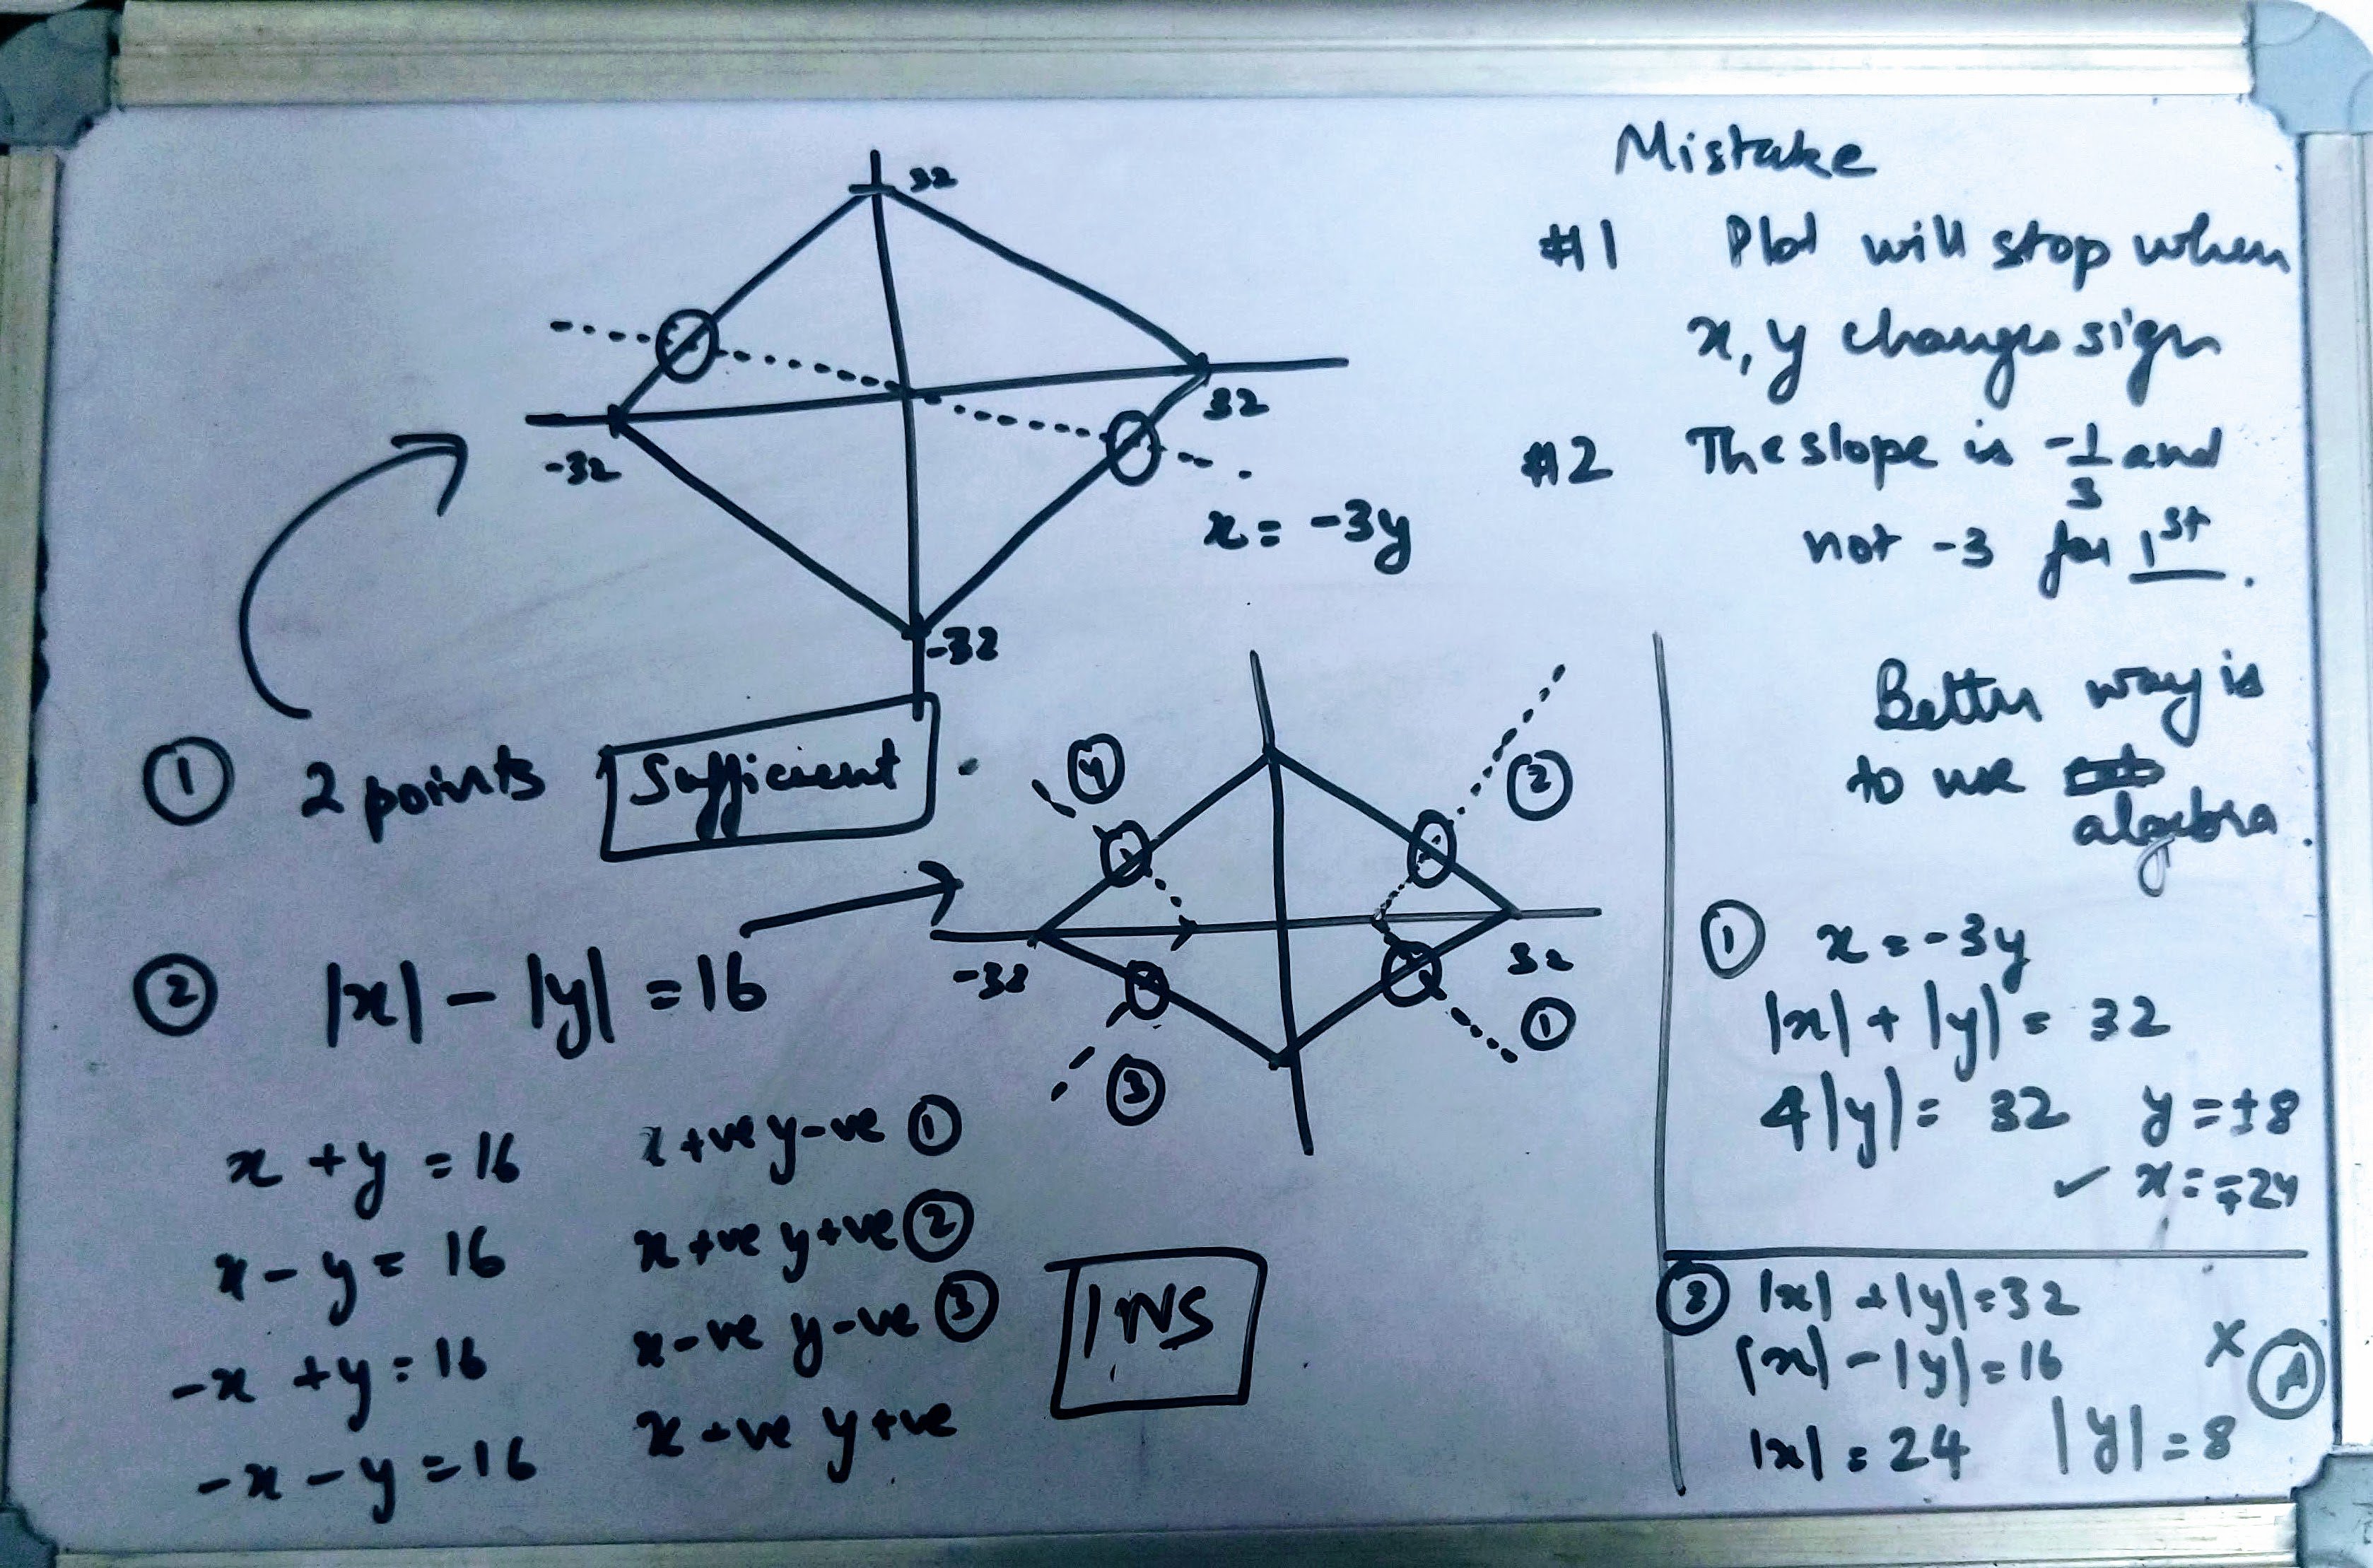 32
-32
32
-32
x = -3y
① 2 points Sufficient
② |x| - |y| = 16
x + y = 16 x +ve y -ve ①
x - y = 16 x +ve y +ve ②
-x + y = 16 x -ve y -ve ③
-x - y = 16 x -ve y +ve
INS
④
②
-32
32
③
①
Mistake
#1 Plot will stop when
x, y changes sign
#2 The slope is -1/3 and
not -3 for 1st.
Better way is
to use
algebra.
① x = -3y
|x| + |y| = 32
4|y| = 32 y = ±8
✓ x = ∓24
② |x| + |y| = 32
|x| - |y| = 16 × Ⓐ
|x| = 24 |y| = 8